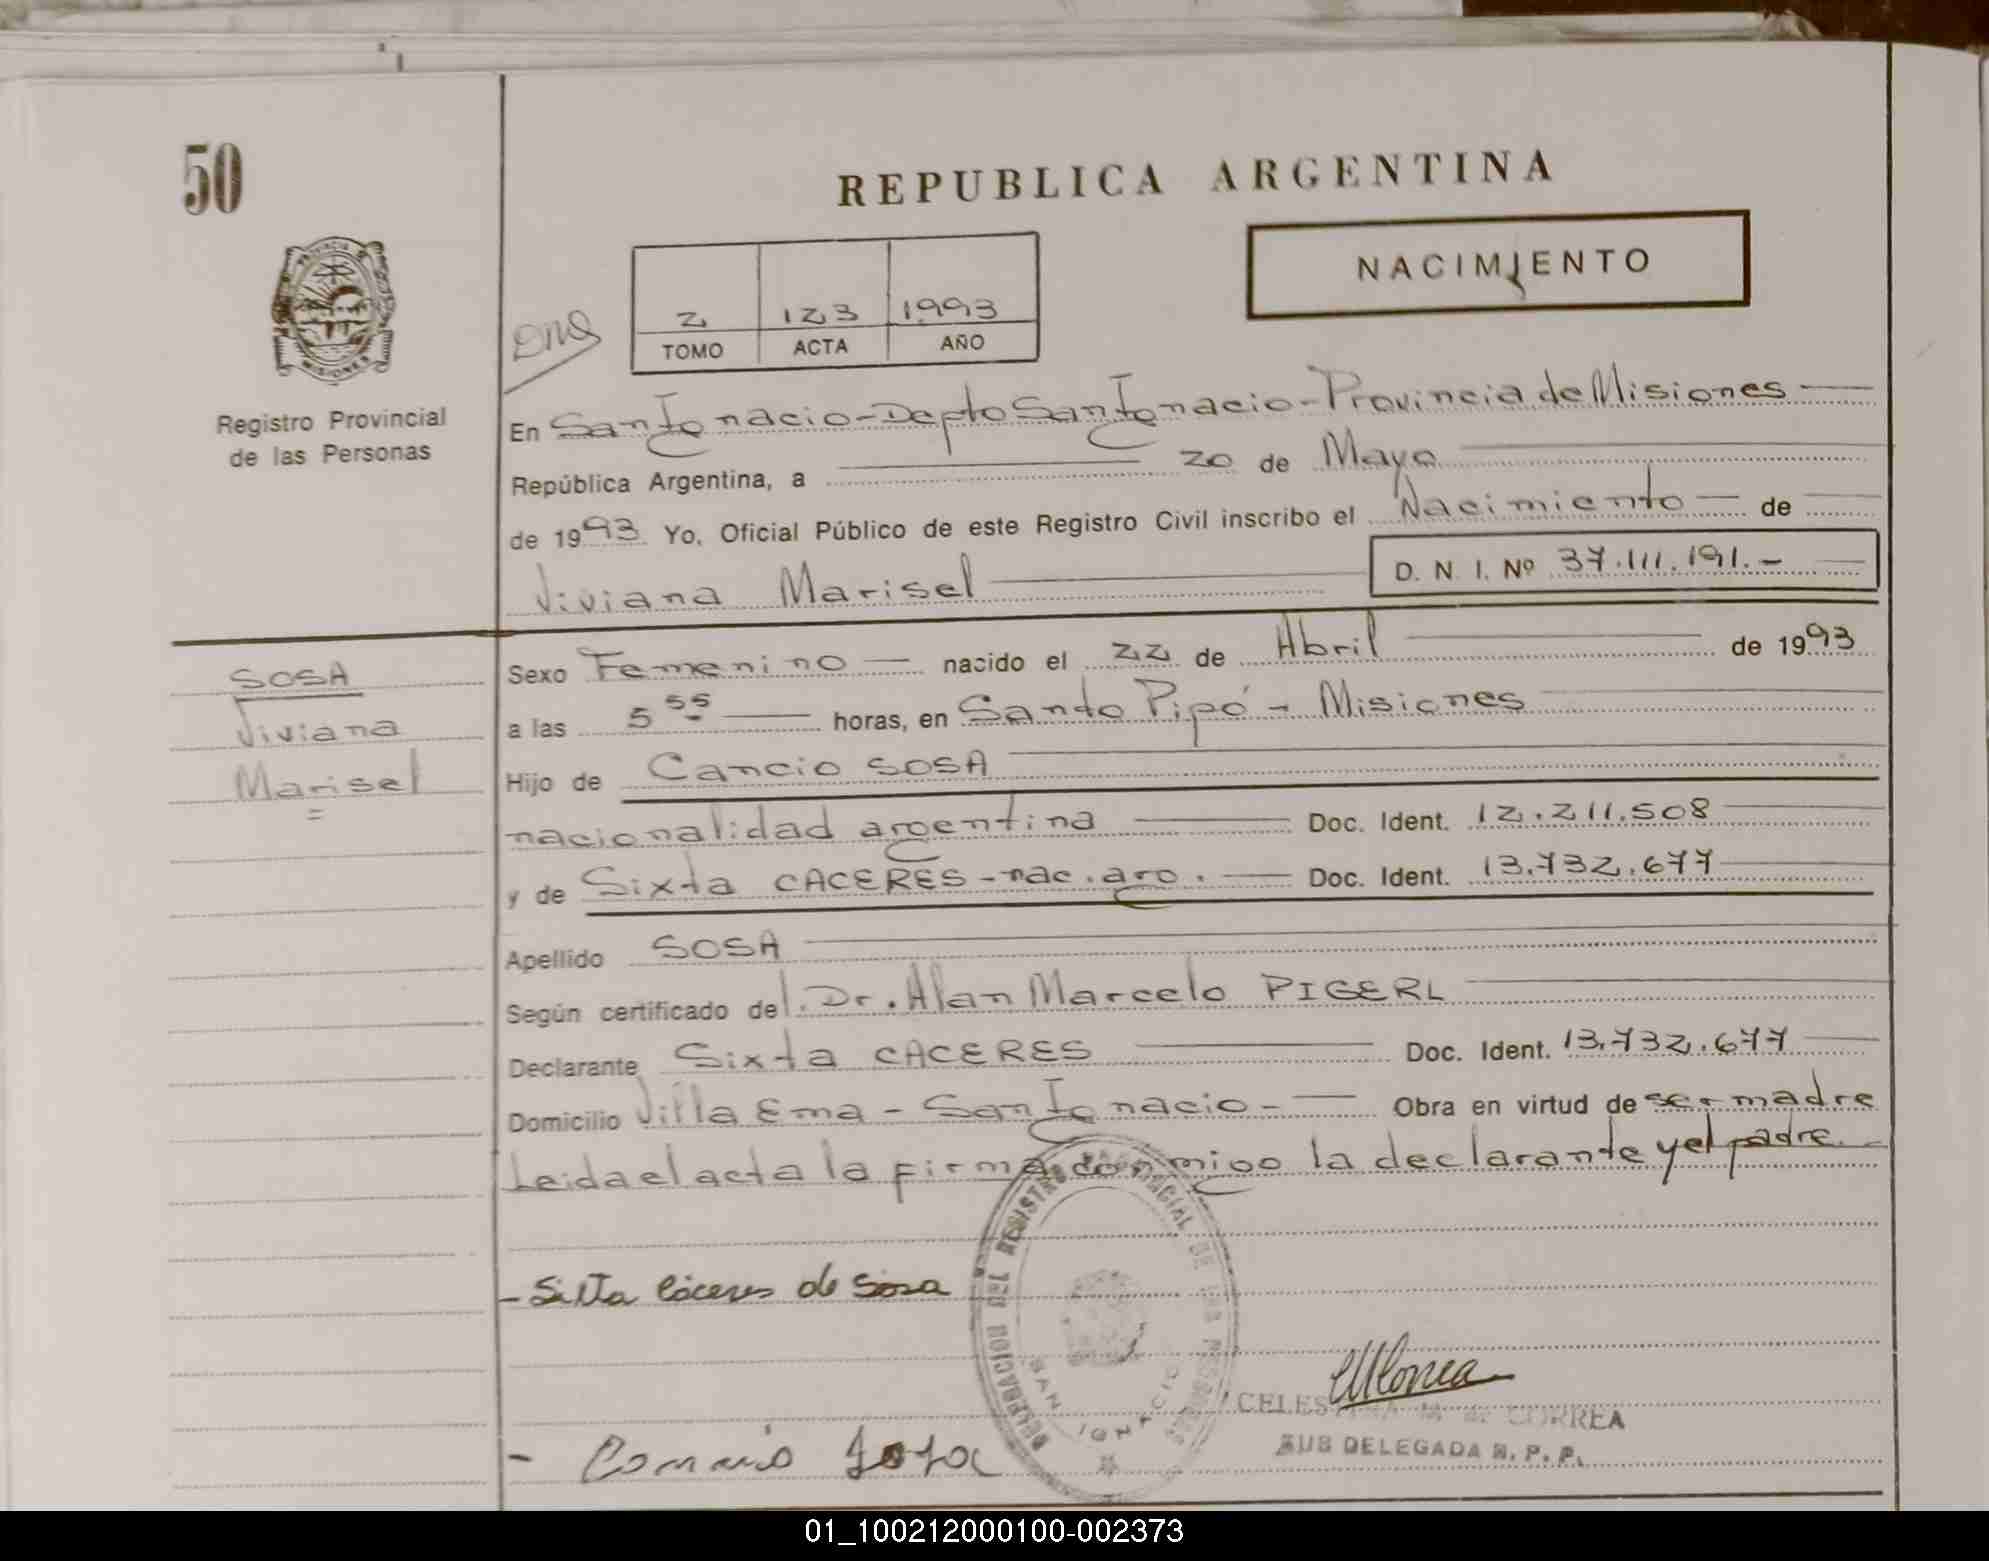 50
REPUBLICA ARGENTINA
NACIMIENTO
PROVINCIA DE
MISIONES
Registro Provincial
de las Personas
2 123 1993
TOMO ACTA AÑO
En San Ignacio-Depto San Ignacio-Provincia de Misiones
República Argentina, a 20 de Mayo
de 1993 Yo, Oficial Público de este Registro Civil inscribo el Nacimiento de
Viviana Marisel D. N. I. Nº 37.111.191.-
SOSA
Viviana
Marisel
Sexo Femenino nacido el 22 de Abril de 1993
a las 5 55 horas, en Santo Pipó - Misiones
Hijo de Cancio SOSA
nacionalidad argentina Doc. Ident. 12.211.508
y de Sixta CACERES-nac.arg. Doc. Ident. 13.732.677
Apellido SOSA
Según certificado del. Dr. Alan Marcelo PIGERL
Declarante Sixta CACERES Doc. Ident. 13.732.677
Domicilio Villa Ema - San Ignacio- Obra en virtud de ser madre
Leida el acta la firma conmigo la declarante y el padre.-
DELEGACION DEL REGISTRO PROVINCIAL DE LAS PERSONAS
SAN IGNACIO
- Sixta Cáceres de Sosa
CELESTINA M. de CORREA
SUB DELEGADA R. P. P.
- Sosa
01_100212000100-002373